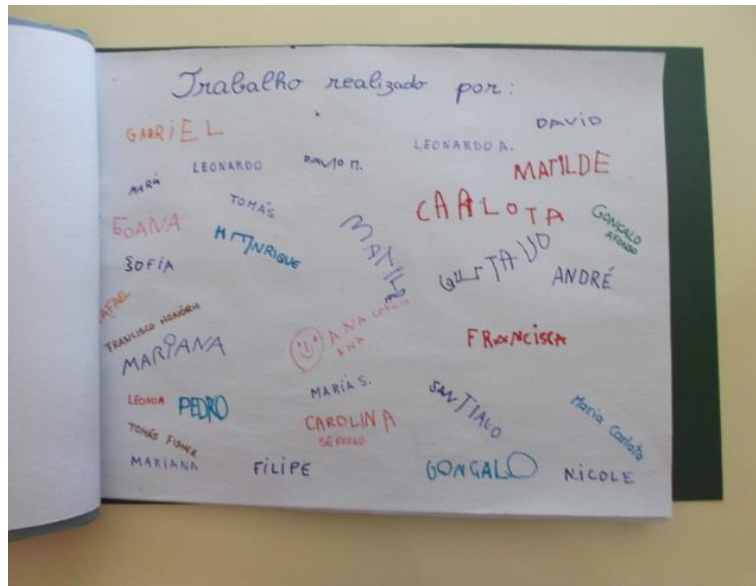 Trabalho realizado por:
GABRIEL
DAVID
LEONARDO A.
LEONARDO
DAVID M.
MATILDE
MARIA
TOMÁS
CARLOTA
GONÇALO
AFONSO
JOANA
HENRIQUE
MATILDE
GUSTAVO
SOFIA
ANDRÉ
RAFAEL
FRANCISCO HONÓRIO
MARIANA
ANA
ANA
FRANCISCA
MARIA S.
LEONOR
PEDRO
CAROLINA
SANTIAGO
Maria Carlota
TOMÁS FISHER
MARIANA
FILIPE
GONÇALO
NICOLE